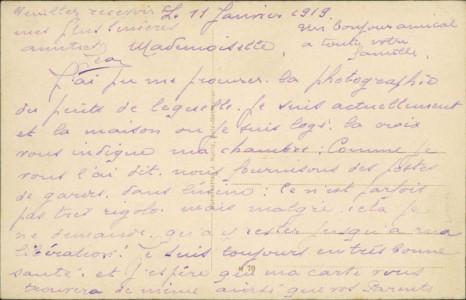 Veuillez recevoir
mes plus sincères
amitiés
Jean
Le 11 Janvier 1919.
Un bonjour amical
a toute votre
famille.
Mademoiselle,
J'ai pu me procurer. la photographie
du puits de laquelle. je suis actuellement
et la maison ou je suis logé. la croix
vous indique ma chambre : Comme je
vous l'ai dit. nous fournissons des postes
de garde. dans l'usine : ce n'est parfois
pas très rigolo. mais malgré. cela je
ne demande. qu'a y rester jusqu'a ma
libération. Je suis toujours en très bonne
santé. et j'espère que ma carte vous
trouvera de même ainsi que vos Parents